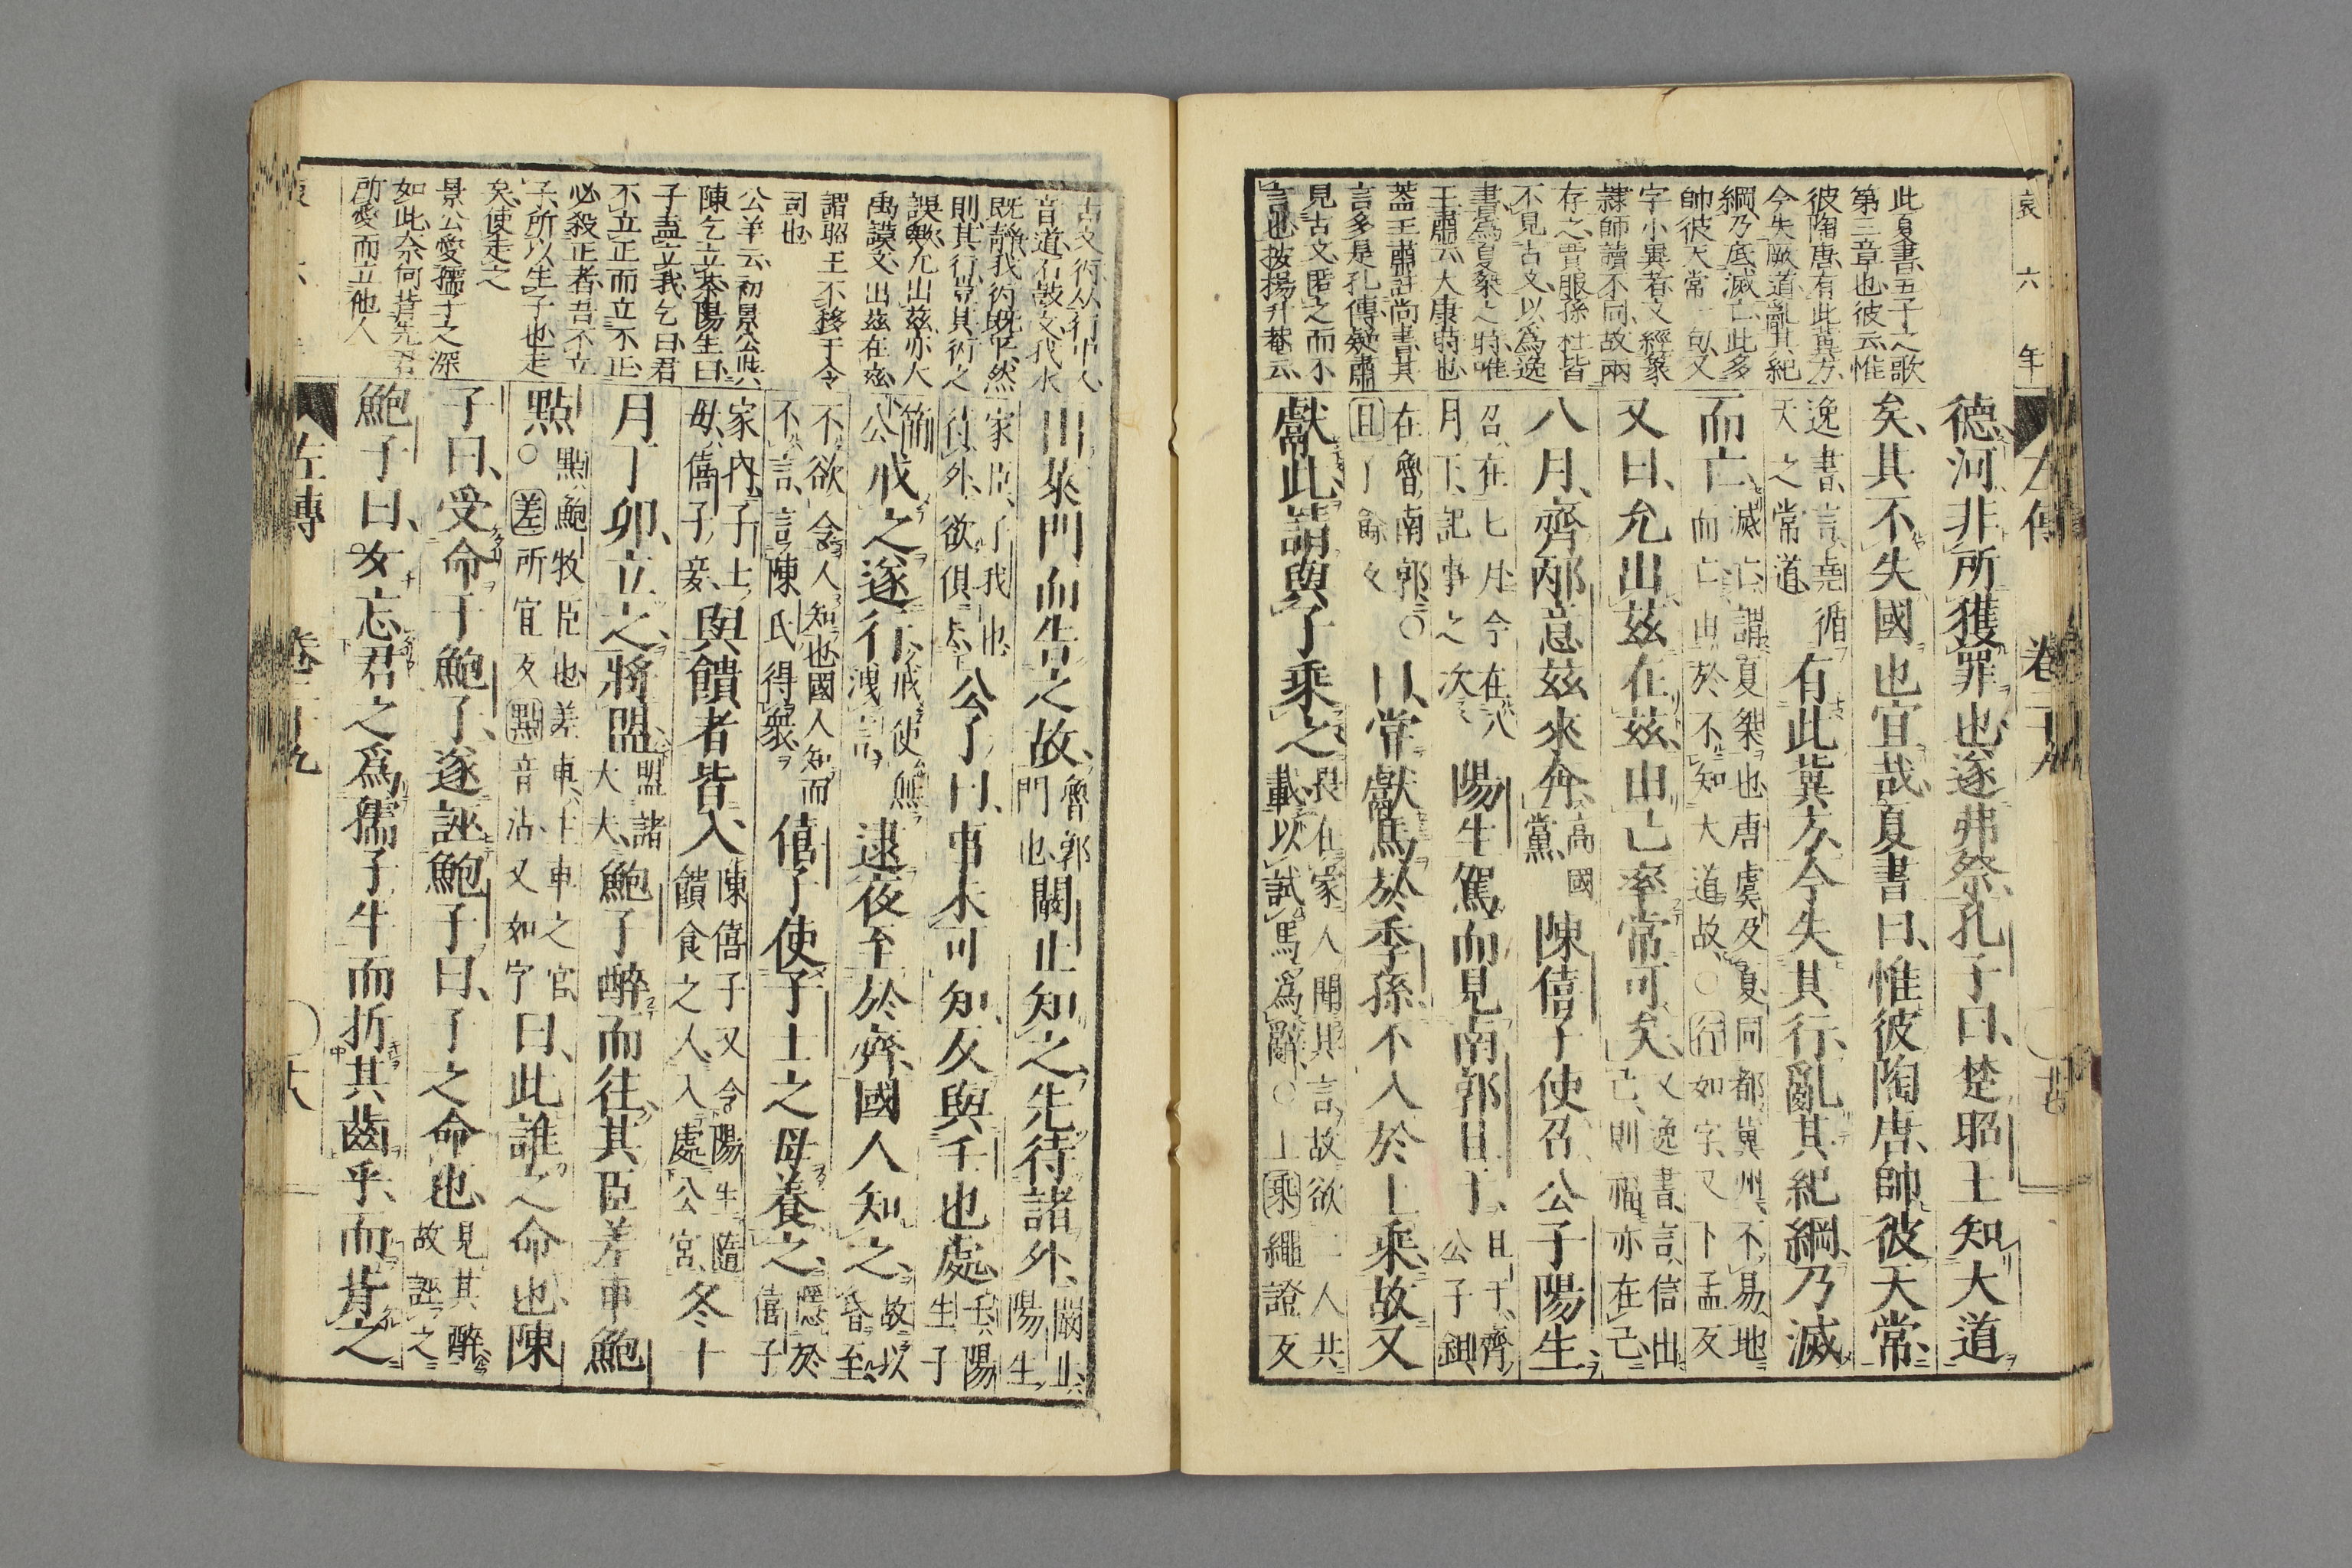 哀六年
左傳 卷二十九
此夏書五子之歌
第三章也彼云惟
彼陶唐有此冀方
今失厥道亂其紀
綱乃底滅亡此多
帥彼天常一句又
字小異者文經篆
隷師讀不同故兩
存之賈服孫杜皆
不見古文以爲逸
書爲夏桀之時唯
王肅云大康時也
蓋王肅註尚書其
言多是孔傳疑肅
見古文匿之而不
言也按楊升菴云
德河非所獲罪也遂弗祭孔子曰楚昭王知大道
矣其不失國也宜哉夏書曰惟彼陶唐帥彼天常
逸書言堯循
天之常道
有此冀方今失其行亂其紀綱乃滅
而亡
滅亡謂夏桀也唐虞及夏同都冀州不易地
而亡由於不知大道故○行如字又卜孟反
又曰允出茲在茲由己率常可矣
又逸書言信出
己則福亦在己
八月齊邴意茲來奔
高國
黨
陳僖子使召公子陽生
召在七月今在八
月下記事之次
陽生駕而見南郭且于
且于齊
公子鉏
在魯南郭○
且子餘反
曰嘗獻馬於季孫不入於上乘故又
獻此請與子乘之
畏在家人聞其言故欲二人共
載以試馬爲辭○上乘繩證反
古文術从行中人
音道石鼓文我水
既靜我術既平然
則其行當其術之
誤歟允出茲亦大
禹謨文出茲在茲
謂昭王不移于令
司也
公羊云初景公與
陳乞立荼陽生曰
子盖立我乞曰君
不立正而立不正
必殺正者吾不立
子所以生子也走
矣使走之
景公愛孺子之深
如此奈何背先君
所愛而立他人
出萊門而告之故
魯郭
門也
闞止知之先待諸外
闞止陽生
家臣子我也
待外欲俱去
公子曰事未可知反與壬也處
壬陽
生子
簡
公
戒之遂行
戒使無
洩言
逮夜至於齊國人知之
故以
昏至
不欲令人知也國人知而
不言言陳氏得衆
僖子使子士之母養之
隱於
僖子
家內子士
母僖子妾
與饋者皆入
陳僖子又令陽生隨
饋食之人入處公宮
冬十
月丁卯立之將盟
盟諸
大夫
鮑子醉而往其臣差車鮑
點
點鮑牧臣也差車主車之官
○差所宜反點音沾又如字
曰此誰之命也陳
子曰受命于鮑子遂誣鮑子曰子之命也
見其醉
故誣之
鮑子曰女忘君之爲孺子牛而折其齒乎而背之
左傳 卷二十九